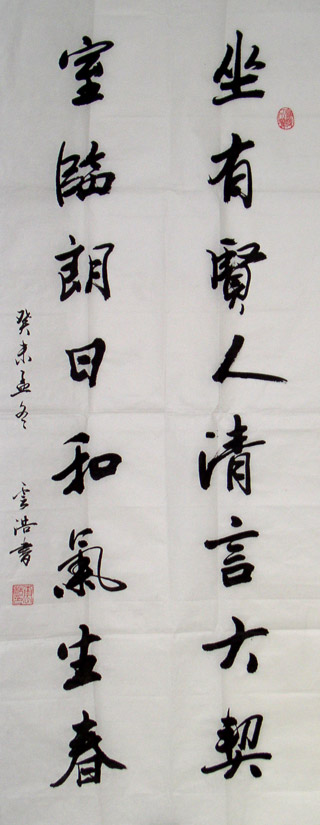 坐有賢人清言大契
室臨朗日和氣生春
癸未孟冬 雲浩書